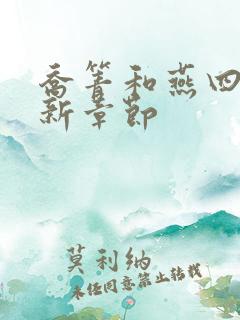 乔箐和燕四
新章节
莫利纳
未经同意禁止转载